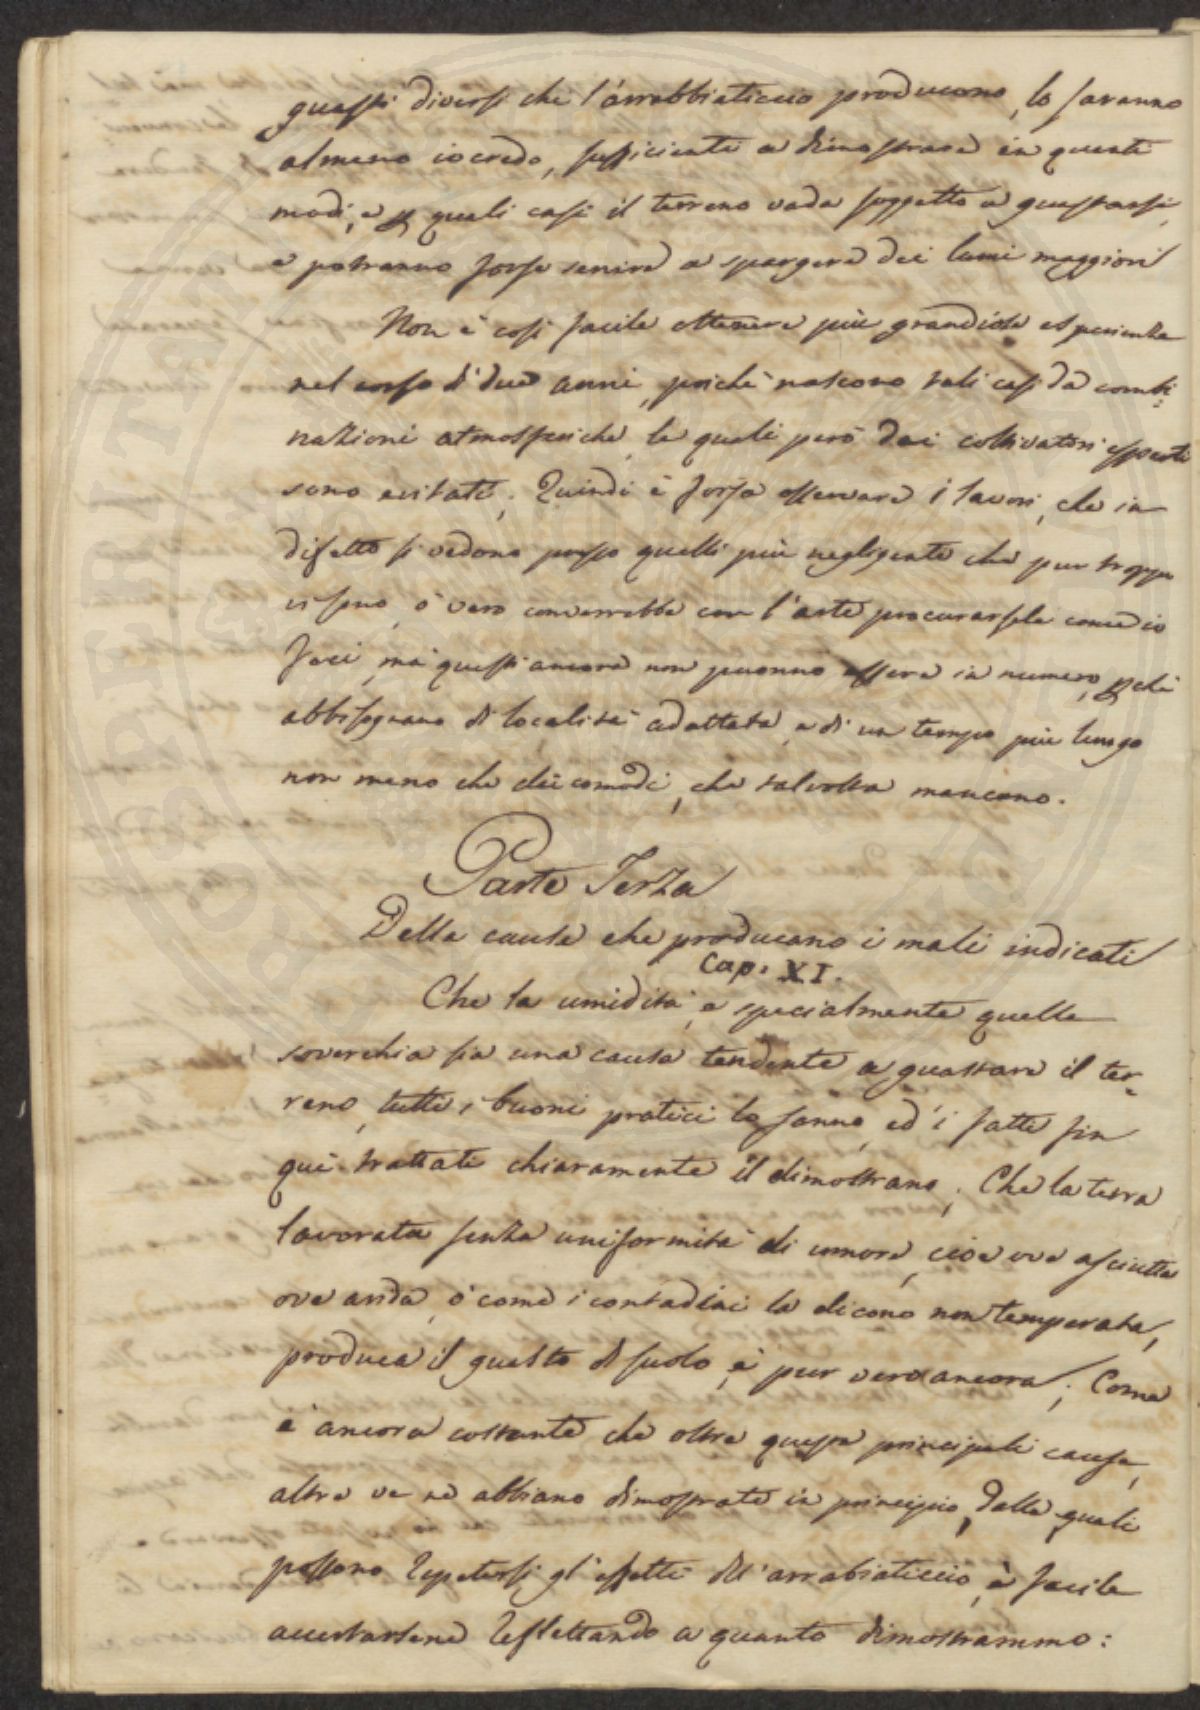 guasti diversi che l'arrabbiaticcio producono, lo saranno
almeno io credo, sufficiente a dimostrare in quante
modi, e quali casi il terreno vada soggetto a guastarsi,
e potranno forse servire a spargere dei lumi maggiori
Non è così facile ottenere più grandiose esperienze
nel corso di due anni, poichè nascono tali casi da combi=
nazioni atmosferiche, le quali però dai coltivatori esperti
sono evitate. Quindi è forza osservare i lavori, che in
difetto si vedono presso quelli più negligente che pur troppo
vi sono, ò vero converrebbe con l'arte procurarsele come io
feci, mà questi ancora non puonno essere in numero,
abbisognano di località adattata, e di un tempo più lungo
non meno che dei comodi, che talvolta mancano.
Parte Terza
Delle cause che producano i mali indicati
Cap. XI.
Che la umidità, e specialmente quella
soverchia sia una causa tendente a guastare il ter=
reno, tutti i buoni pratici lo sanno, ed i fatti fin
quì trattati chiaramente il dimostrano; Che la terra
lavorata senza uniformità di umore, cioè ove asciutta
ove arida, ò come i contadini la dicono non temperata,
produca il guasto di suolo, è pur vero ancora; Come
è ancora costante che oltre queste principali cause,
altre ve nè abbiano dimostrate in principio, dalle quali
possono repetersi gl'effetti dell'arrabiaticcio, è facile
accertarsene reflettando a quanto dimostrammo: